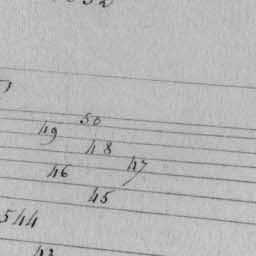 50
49
48
46 47
45
544
43